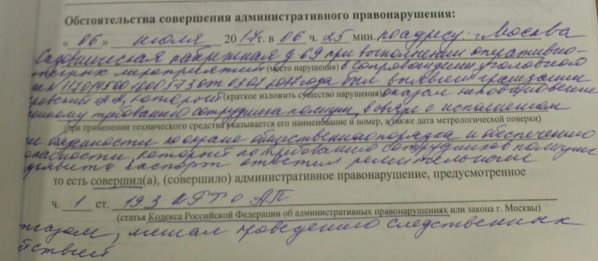 Обстоятельства совершения административного правонарушения:
« 06 » июля 2017 г. в 06 ч. 25 мин. по адресу: г. Москва
Садовническая набережная д 69 при выполнении оперативно-
мероприятий в сопровождении уголовного
(место нарушения)
от 05.07.2017 года был выявлен гражданин
А.А, который оказал неповиновение
(кратко изложить существо нарушения)
требованию сотрудника полиции, в связи с исполнением
(при применении технического средства указывается его наименование и номер, а также дата метрологической поверки)
обязанностей по охране общественного порядка и обеспечению
который по требованию сотрудников полиции
паспорт ответил решительным
то есть совершил(а), (совершило) административное правонарушение, предусмотренное
ч. 1 ст. 19.3 КРФ о АП
(статья Кодекса Российской Федерации об административных правонарушениях или закона г. Москвы)
мешал проведению следственных